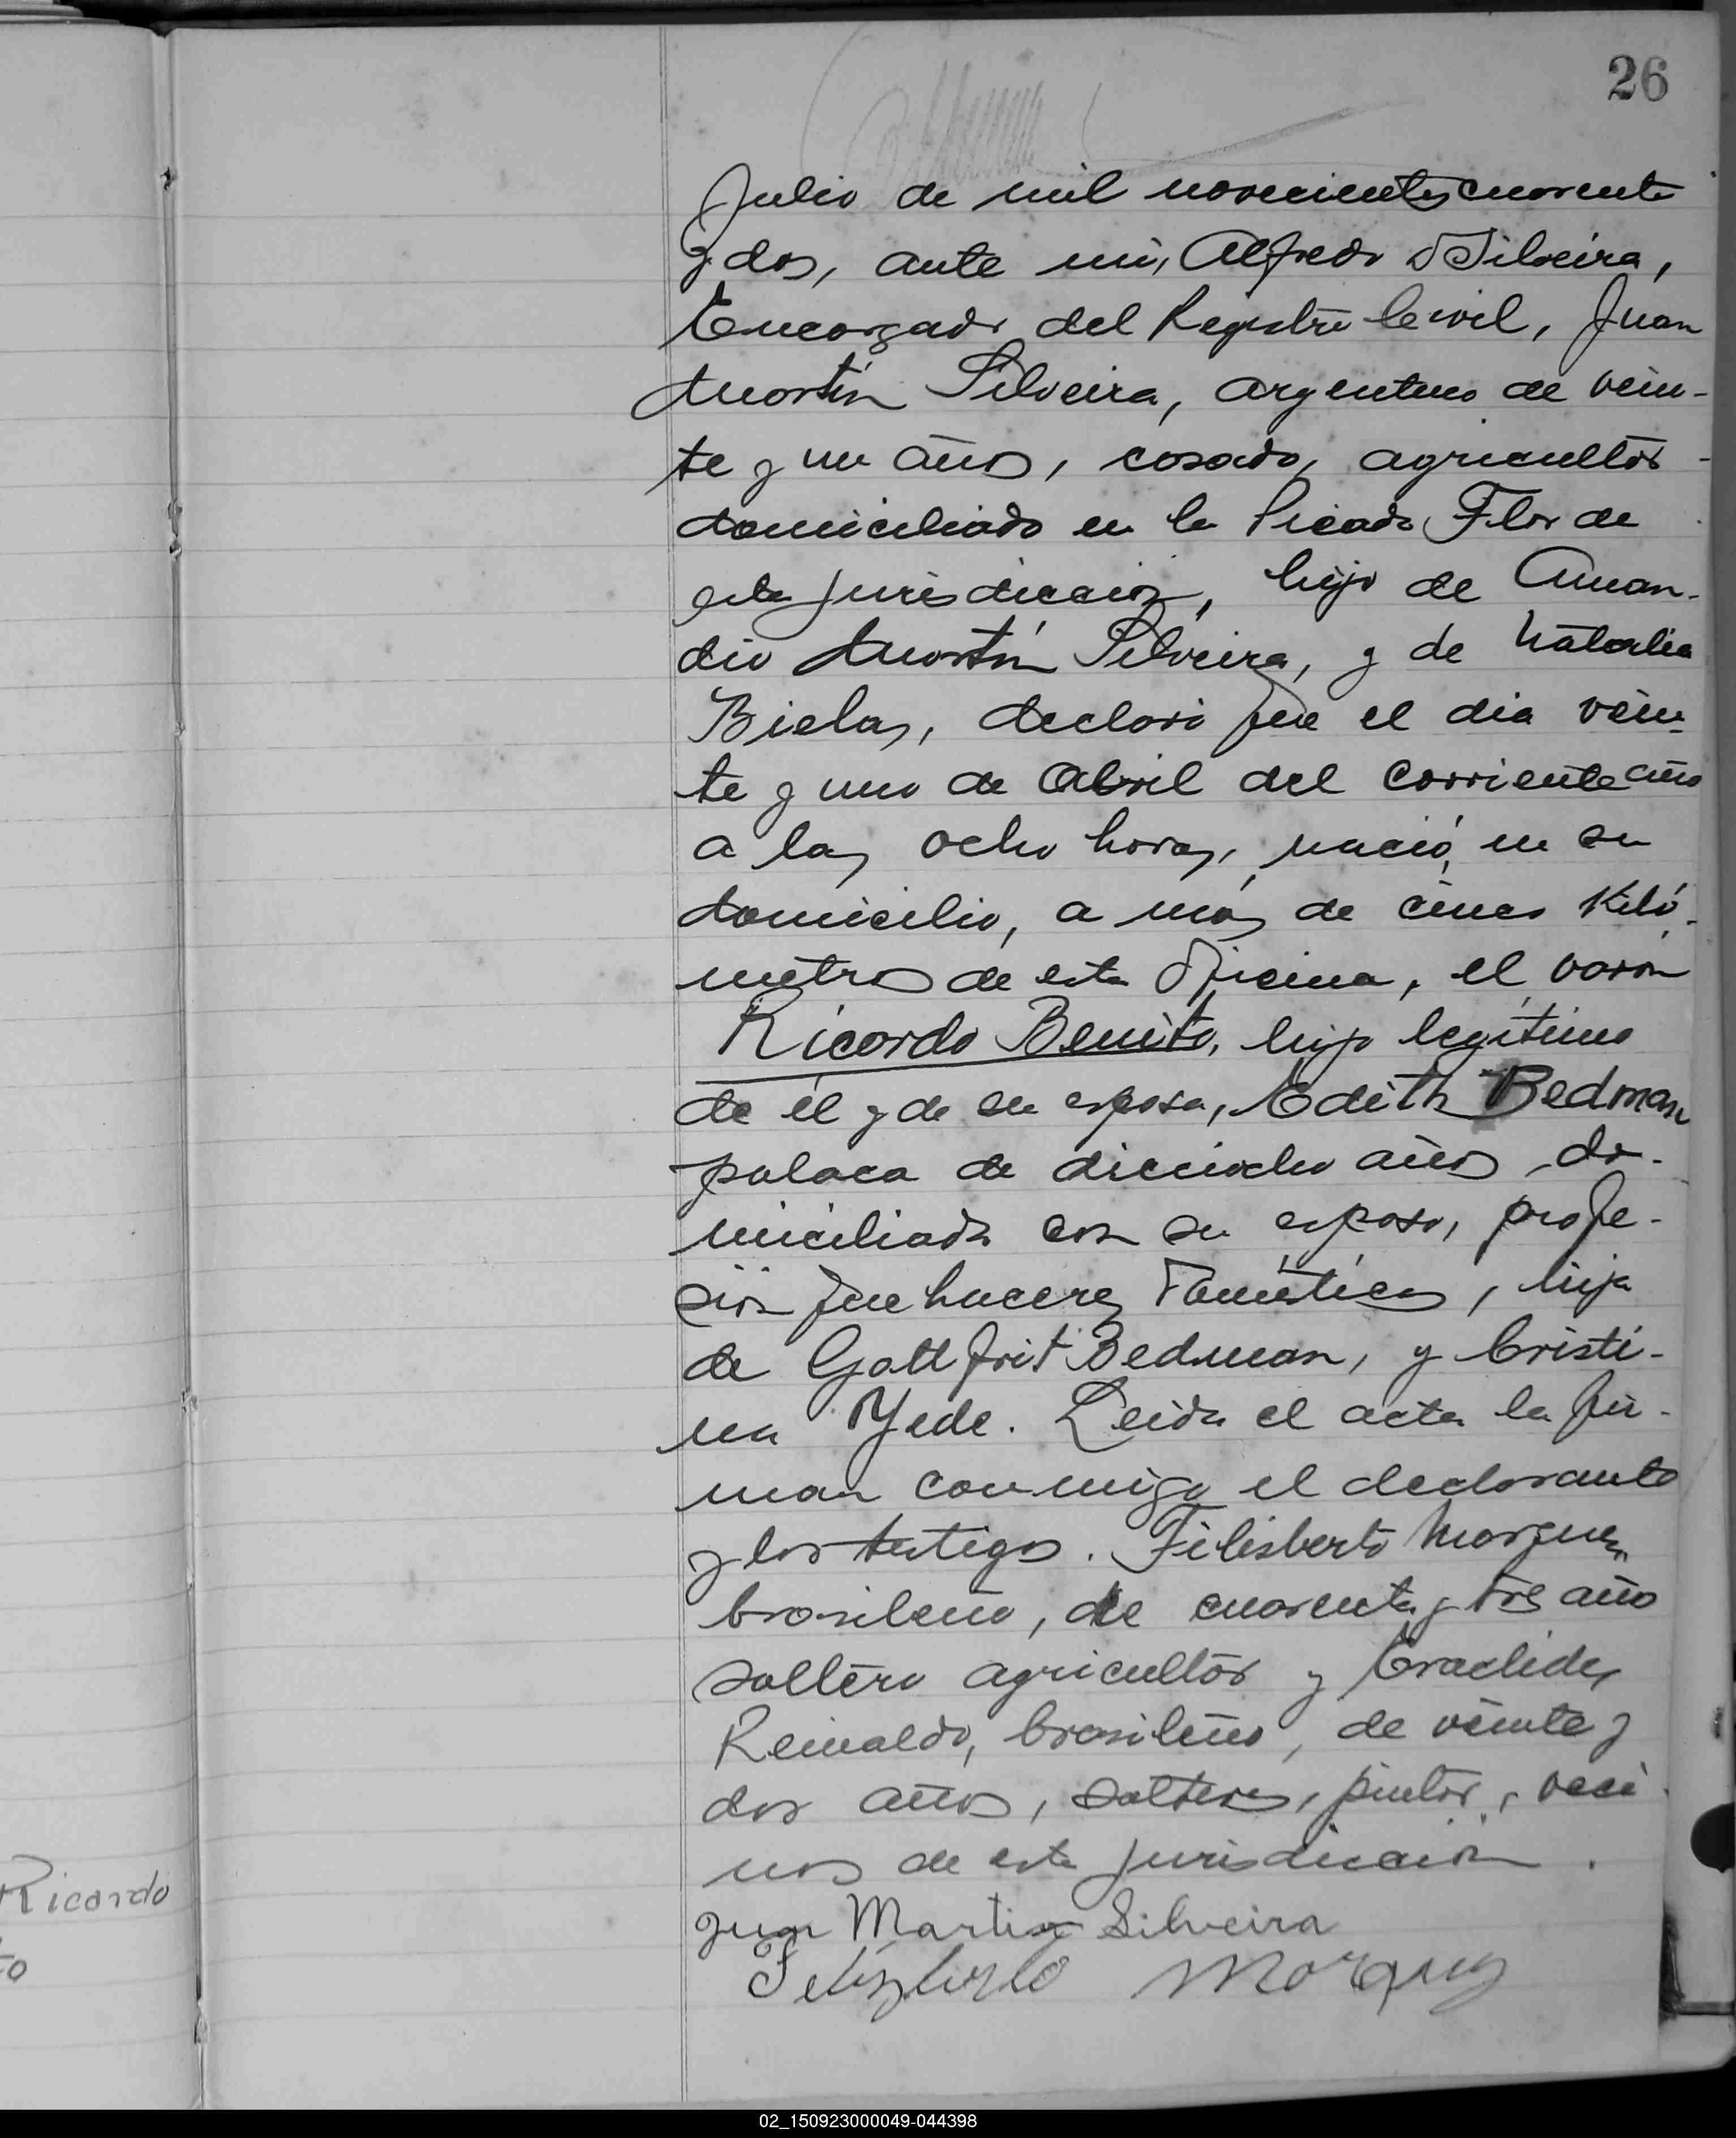 26
Julio de mil novecientos cuarenta
y dos, ante mi, Alfredo D Silveira,
Encargado del Registro Civil, Juan
Martín Silveira, argentino de vein-
te y un años, casado, agricultor
domiciliado en la Picada Flor de
esta jurisdicción, hijo de Aman-
dio Martín Silveira, y de Natalia
Bielas, declaró que el dia vein-
te y uno de Abril del corriente año
a las ocho horas, nació, en su
domicilio, a más de cinco Kiló-
metros de esta Oficina, el varón
Ricardo Benito, hijo legítimo
de él y de su esposa, Edith Bedman
polaca de dieciocho años, do-
miciliada con su esposo, profe-
sión quehaceres Domésticos, hija
de Gottfrit Bedman, y Cristi-
na Yede. Leida el acta la fir-
man conmigo el declarante
y los testigos. Filisberto Marques
brasileño, de cuarenta y tres año
soltero agricultor y Eraclides
Reinaldo, brasileño, de veinte y
dos años, soltero, pintor, veci
nos de esta jurisdicción.
Juan Martin Silveira
Felisberto Marques
Ricardo
to
02_150923000049-044398